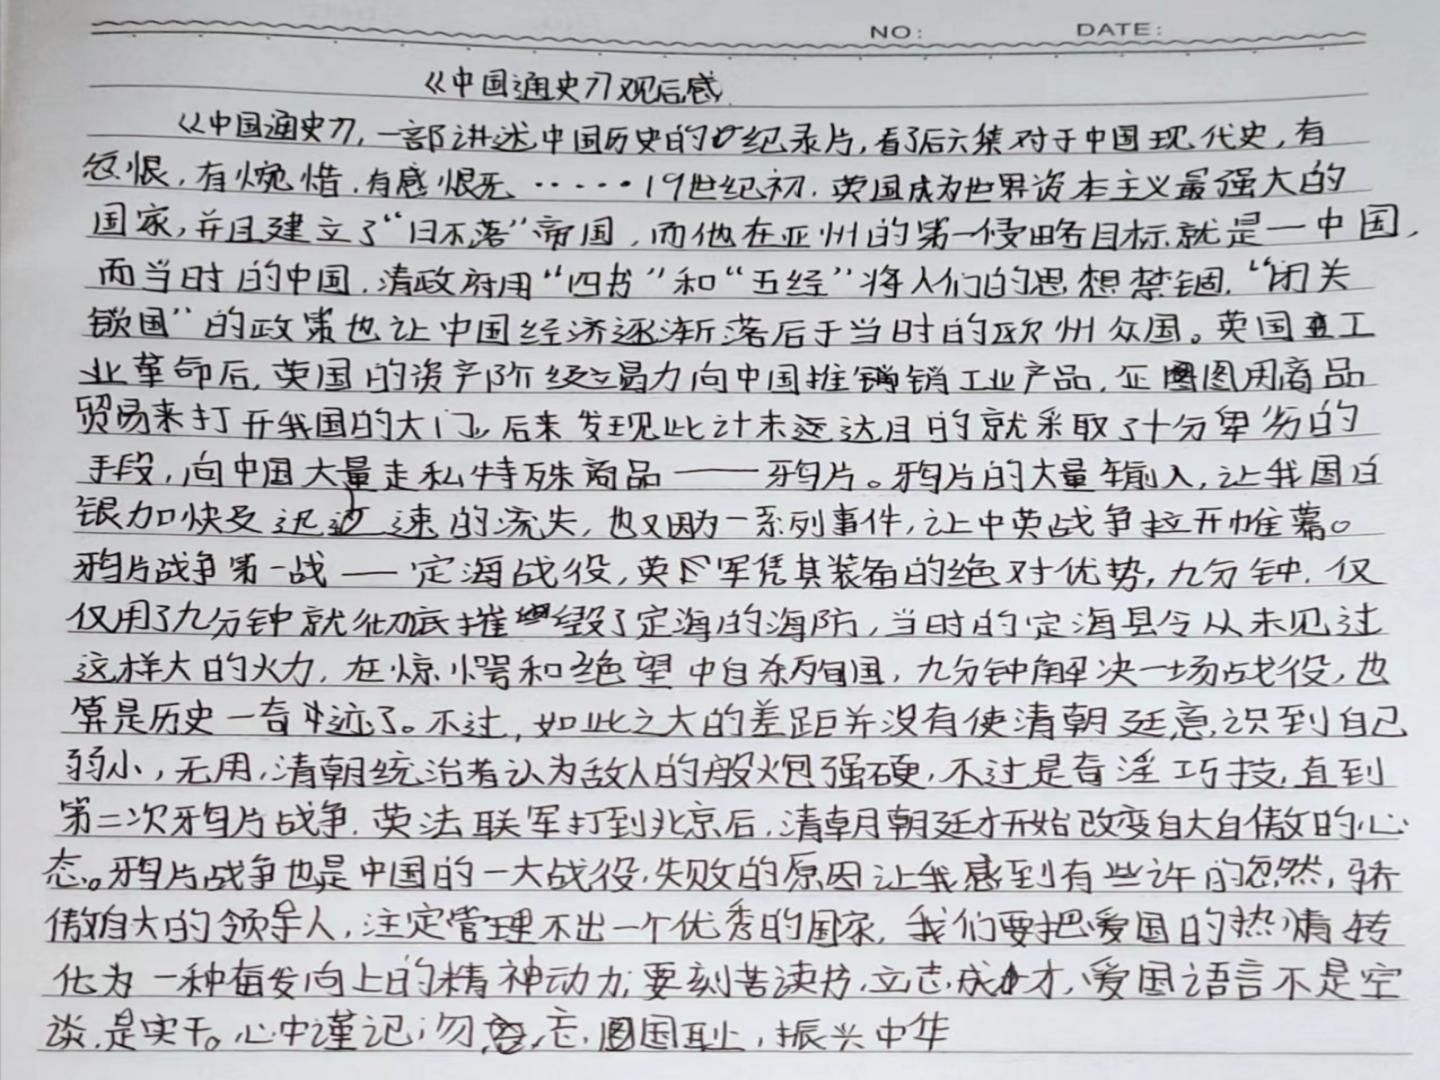 NO: DATE:
《中国通史》观后感
《中国通史》,一部讲述中国历史的纪录片,看了后六集对于中国现代史,有
忿恨,有惋惜,有感恨无……19世纪初,英国成为世界资本主义最强大的
国家,并且建立了“日不落”帝国,而他在亚州的第一侵略目标就是一中国,
而当时的中国,清政府用“四书”和“五经”将人们的思想禁锢,“闭关
锁国”的政策也让中国经济逐渐落后于当时的欧州众国。英国重工
业革命后,英国的资产阶级立易力向中国推销工业产品,企图用商品
贸易来打开我国的大门,后来发现此计未达目的就采取了十分卑劣的
手段,向中国大量走私特殊商品——鸦片。鸦片的大量输入,让我国白
银加快及迅速的流失,也又因为一系列事件,让中英战争拉开帷幕。
鸦片战争第一战—定海战役,英军凭其装备的绝对优势,九分钟,仅
仅用了九分钟就彻底摧毁了定海的海防,当时的定海县令从未见过
这样大的火力,在惊愕和绝望中自杀殉国,九分钟解决一场战役,也
算是历史一奇迹了。不过,如此之大的差距并没有使清朝廷意识到自己
弱小,无用,清朝统治者认为敌人的般炮强硬,不过是奇淫巧技,直到
第二次鸦片战争,英法联军打到北京后,清朝朝廷才开始改变自大自傲的心
态。鸦片战争也是中国的一大战役,失败的原因让我感到有些许的忽然,骄
傲自大的领导人,注定管理不出一个优秀的国家,我们要把爱国的热情转
化为一种奋发向上的精神动力,要刻苦读书,立志成才,爱国语言不是空
谈,是实干。心中谨记,勿忘,国耻,振兴中华